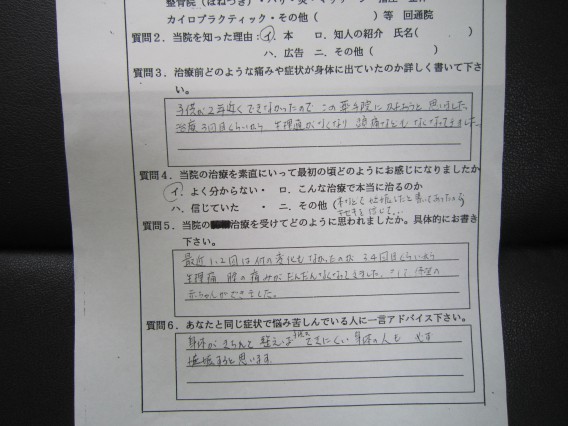 整骨院（ほねつぎ）・ハリ・灸・マッサージ・指圧・整体
カイロプラクティック・その他（　　　　　）等 回通院
質問２．当院を知った理由：イ．本　ロ．知人の紹介 氏名（　　　）
ハ．広告　ニ．その他（　　　　）
質問３．治療前どのような痛みや症状が身体に出ていたのか詳しく書いて下さ
い。
子供が2年近くできなかったので この 院に しようと 思いました。
治療3回目くらいから 生理痛がなくなり 頭痛などもなくなってきました。
質問４．当院の治療を素直にいって最初の頃どのようにお感じになりましたか
イ．よく分からない・　ロ．こんな治療で本当に治るのか
ハ．信じていた　・　ニ．その他（本に と書いてあったから
信じて
質問５．当院の 治療を受けてどのように思われましたか。具体的にお書き
下さい。
最初1、2回は何の変化もなかったのが 3、4回目くらいから
生理痛 腰の痛みがだんだんなくなってきました。そして 待望の
赤ちゃんができました。
質問６．あなたと同じ症状で悩み苦しんでいる人に一言アドバイス下さい。
身体がきちんと 整えば できにくい 身体の人も 必ず
妊娠すると思います。